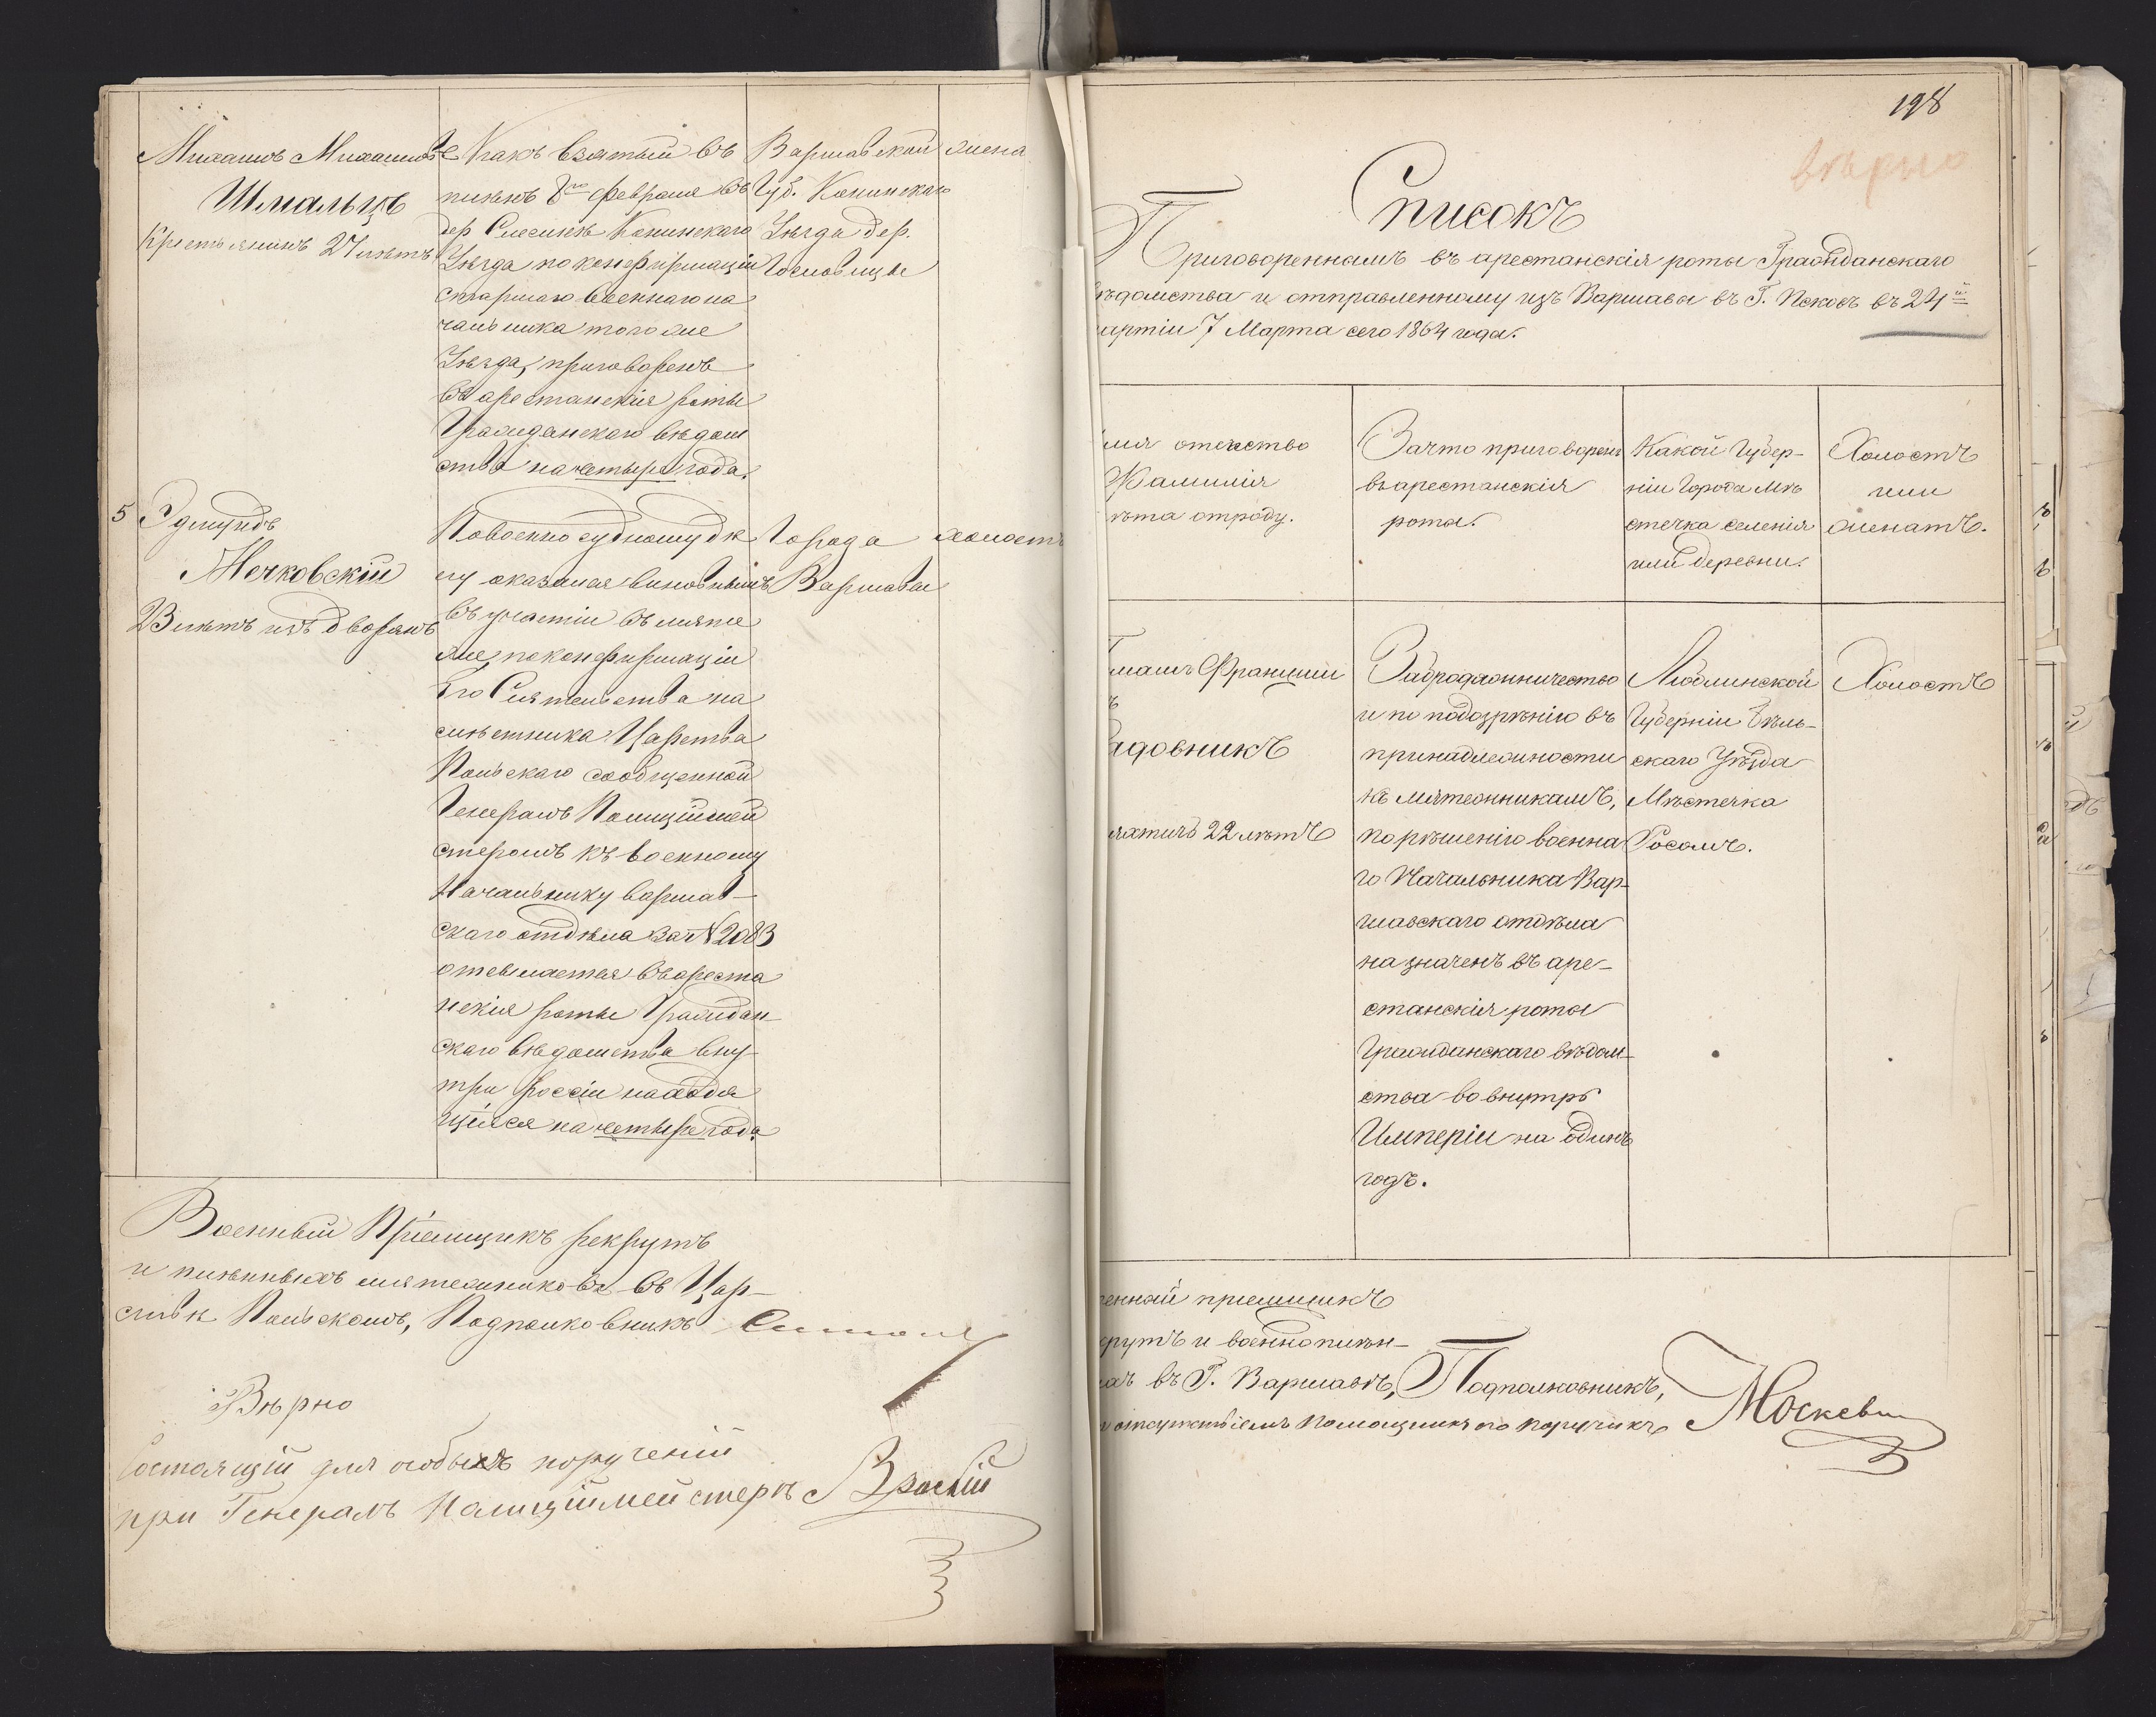 Михаилъ Михаиловъ
Шмальцъ
Крестьянинъ 27 лѣтъ
Какъ взятый въ
плѣнъ 8го февраля въ
дер Слесинѣ Конинскаго
Уѣзда по конфирмаціи
старшаго военнаго на
чальника того же
Уѣзда, приговоренъ
въ арестанскія роты
Гражданскаго вѣдом
ства на четыре года.
Варшавской
Губ. Конинскаго
Уѣзда дер.
жена
5 Эдмундъ
Мечковскій
23 лѣтъ изъ дворянъ
По военно судному дѣ
лу оказался виновнымъ
въ участіи въ мяте
жѣ, по конфирмаціи
Его Сіятельства На
мѣстника Царства
Польскаго сообщенной
Генералъ Полиціймей
стеромъ къ военному
Начальнику варшав-
скаго отдѣла за № 2083
отсылается въ ареста
нскія роты Граждан-
скаго вѣдомства вну-
три Россіи находя
щійся на четыре года
Города
Варшавы
холостъ
Военный Пріемщикъ рекрутъ
и плѣнныхъ мятежниковъ въ Цар-
ствѣ Польскомъ, Подполковникъ
Вѣрно
Состоящій для особыхъ порученій
при Генералъ Полиціймейстерѣ
198
вѣрно
Списокъ
Приговореннымъ въ арестанскія роты Гражданскаго
вѣдомства и отправленному изъ Варшавы въ Г. Псковъ въ 24й
партіи 7 Марта сего 1864 года.
имя отечество
Фамилія
лѣта отроду.
За что приговоренъ
въ арестанскія
роты.
Какой Губер-
ніи Города Мѣ
стечка селенія
или деревни.
Холостъ
или
женатъ.
Томашъ Францишк
Садовникъ
22 лѣтъ
За бродяжничество
и по подозрѣнію въ
принадлежности
къ мятежникамъ,
по рѣшенію военна
го Начальника Вар-
шавскаго отдѣла
назначенъ въ аре-
станскія роты
Гражданскаго вѣдом-
ства во внутрь
Имперіи на одинъ
годъ.
Люблинской
Губерніи Бѣль-
скаго Уѣзда
Мѣстечка
Росошъ.
Холостъ
Военной пріемщикъ
рекрутъ и военноплѣн-
ныхъ въ Г. Варшавѣ, Подполковникъ,
за отсутствіемъ Помощникъ его поручикъ